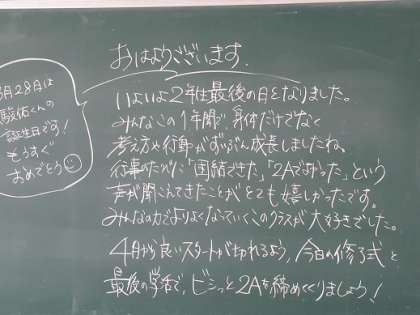 おはようございます。
いよいよ2年生最後の日となりました。
みんなこの1年間で、身体だけでなく
考え方や行動がずいぶん成長しましたね。
行事のたびに「団結できた」「2Aでよかった」という
声が聞こえてきたことがとても嬉しかったです。
みんなの力でよりよくなっていくこのクラスが大好きでした。
4月から良いスタートがきれるよう、今日の修了式と
最後の学活で、ビシっと2Aを締めくくりましょう!
3月28日は
駿佑くんの
誕生日です!
もうすぐ
おめでとう